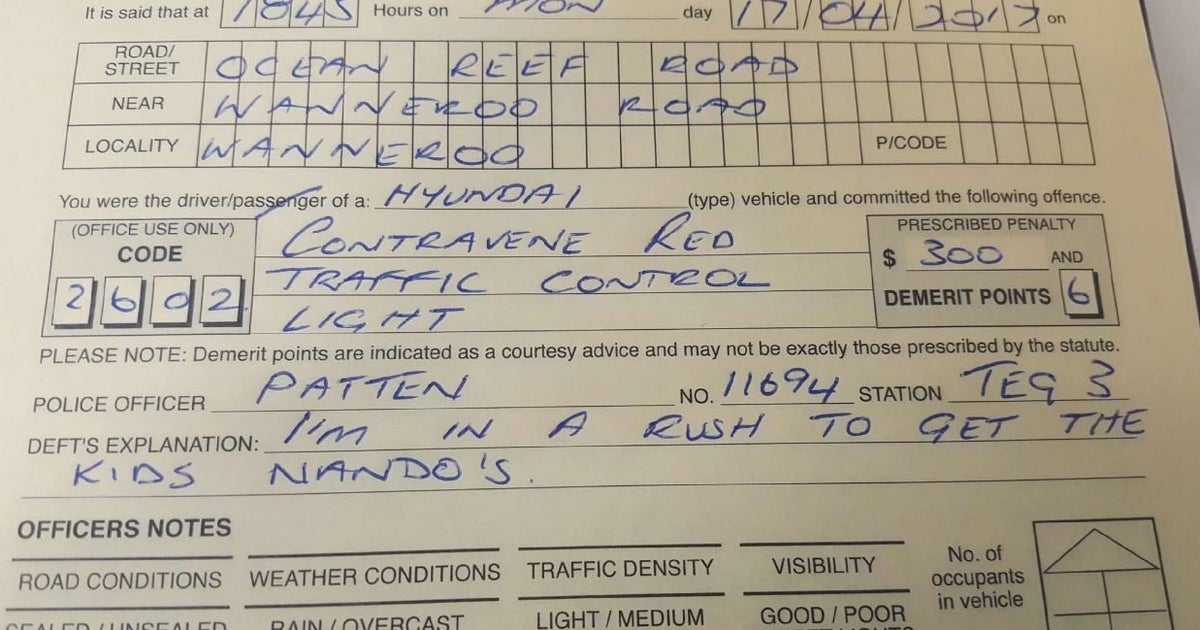 It is said that at 1845 Hours on MON day 17/04/2017 on
ROAD/
STREET OCEAN REEF ROAD
NEAR WANNEROO ROAD
LOCALITY WANNEROO P/CODE
You were the driver/passenger of a: HYUNDAI (type) vehicle and committed the following offence.
(OFFICE USE ONLY)
CODE
2602
CONTRAVENE RED
TRAFFIC CONTROL
LIGHT
PRESCRIBED PENALTY
$ 300 AND
DEMERIT POINTS 6
PLEASE NOTE: Demerit points are indicated as a courtesy advice and may not be exactly those prescribed by the statute.
POLICE OFFICER PATTEN NO. 11694 STATION TEG 3
DEFT'S EXPLANATION: I'M IN A RUSH TO GET THE
KIDS NANDO'S.
OFFICERS NOTES
ROAD CONDITIONS WEATHER CONDITIONS TRAFFIC DENSITY VISIBILITY
No. of
occupants
in vehicle
SEALED / UNSEALED RAIN / OVERCAST LIGHT / MEDIUM GOOD / POOR